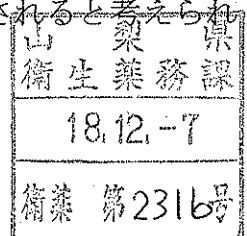 されると考えられ
山梨県
衛生薬務課
18.12.-7
衛薬 第2316号